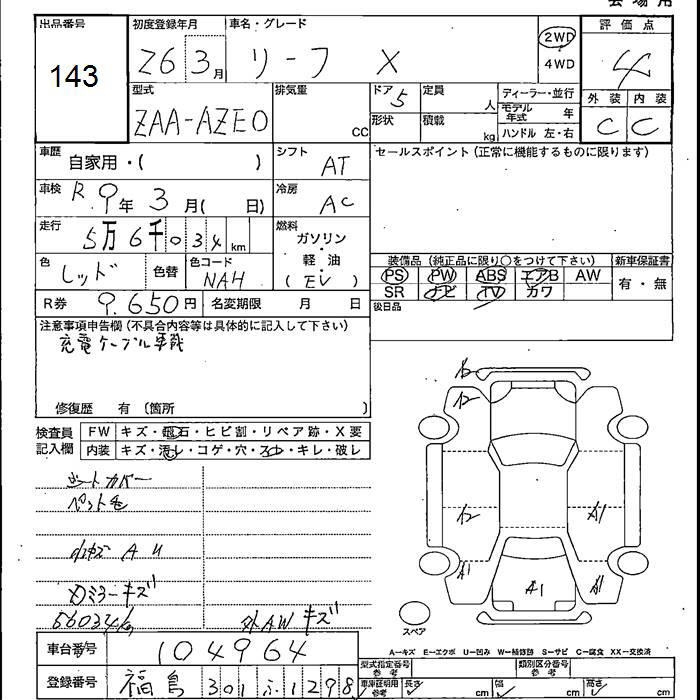 会場用
出品番号
143
初度登録年月
26 3月
車名・グレード
リーフ X
2WD
4WD
評価点
4
外装 内装
C C
型式
ZAA-AZE0
排気量
cc
ドア 5
定員
人
形状
積載
kg
ディーラー・並行
モデル年式 年
ハンドル 左・右
車歴
自家用・( )
シフト
AT
セールスポイント(正常に機能するものに限ります)
車検
R.9年3月( 日)
冷房
AC
走行
5万6千034km
燃料
ガソリン
軽油
(EV)
色
レッド
色替
色コード
NAH
装備品(純正品に限り○をつけて下さい)
新車保証書
PS PW ABS エアB AW
SR ナビ TV カワ
有・無
R券
9.650円
名変期限 月 日
後日品
注意事項申告欄(不具合内容等は具体的に記入して下さい)
充電ケーブル車載
修復歴 有(箇所 )
検査員記入欄
FW キズ・飛石・ヒビ割・リペア跡・X要
内装 キズ・汚レ・コゲ・穴・スレ・キレ・破レ
シートカバー
ペット毛
A U
ミラーキズ
56034k
外AWキズ
A1
A1
A1
A1
スペア
A−キズ E−エクボ U−凹み W−補修跡 S−サビ C−腐食 XX−交換済
車台番号
104964
型式指定番号
参考
類別区分番号
登録番号
福島 301 ふ 1298
車庫証明用
参考
長さ cm
幅 cm
高さ cm